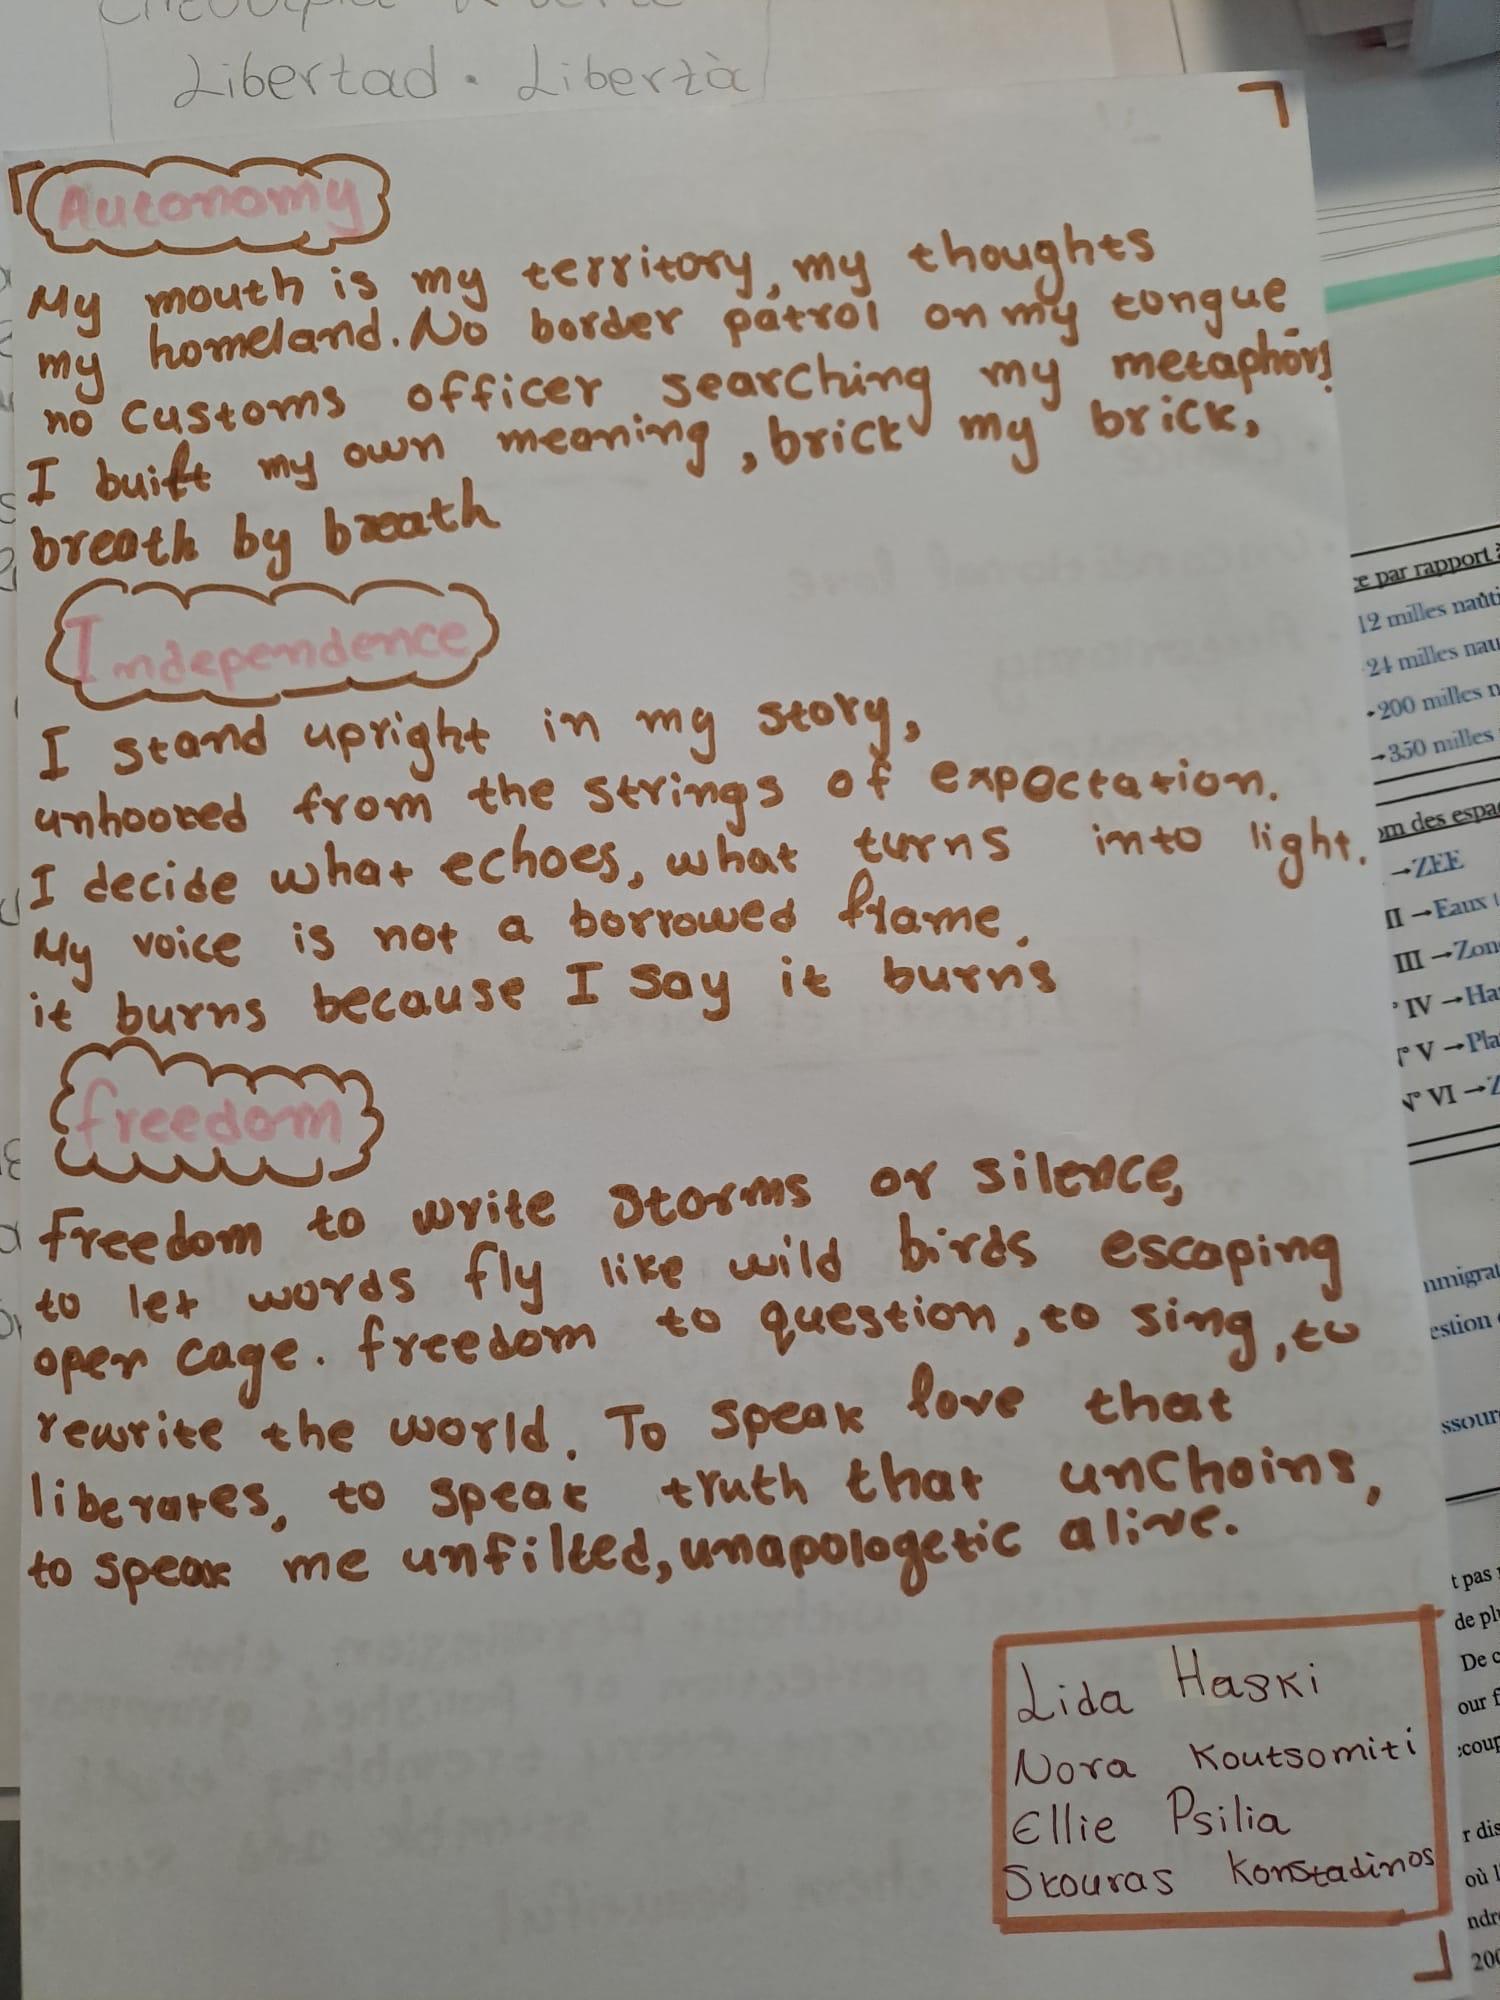 Libertad . Libertà
Autonomy
My mouth is my territory, my thoughts
my homeland. No border patrol on my tongue
no customs officer searching my metaphors
I built my own meaning, brick my brick,
breath by breath
Independence
I stand upright in my story,
unhooked from the strings of expectation.
I decide what echoes, what turns into light.
My voice is not a borrowed flame,
it burns because I say it burns
freedom
freedom to write storms or silence,
to let words fly like wild birds escaping
open cage. freedom to question, to sing, to
rewrite the world. To speak love that
liberates, to speak truth that unchains,
to speak me unfilted, unapologetic alive.
Lida Haski
Nora Koutsomiti
Ellie Psilia
Skouras Konstadinos
ce par rapport à
12 milles nauti
24 milles nau
-200 milles n
→350 milles
om des espa
→ZEE
II →Eaux t
III →Zon
IV →Ha
V →Pla
N° VI →Z
nmigrat
estion
ssour
t pas
de pl
De c
our f
coup
r dis
où l
ndr
200